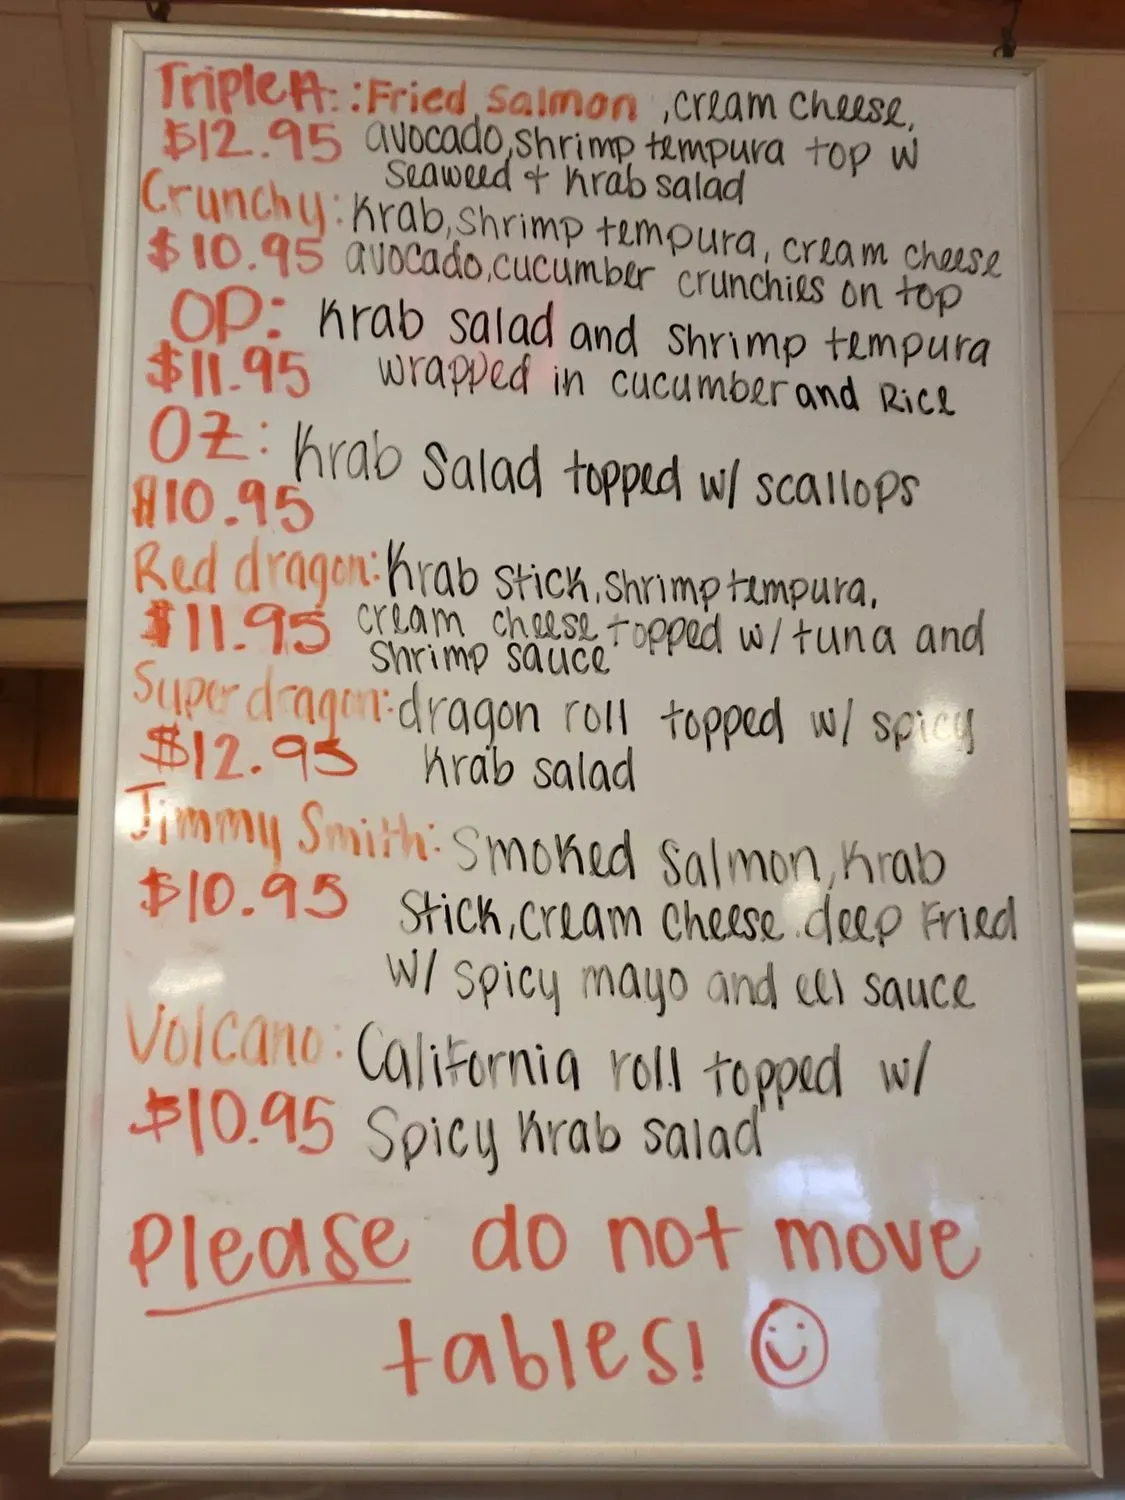 Triple A: :Fried Salmon ,cream cheese,
$12.95 avocado, shrimp tempura top w
Seaweed + Krab salad
Crunchy: Krab, shrimp tempura, cream cheese
$10.95 avocado, cucumber crunchies on top
OP: Krab salad and shrimp tempura
$11.95 wrapped in cucumber and Rice
OZ: Krab Salad topped w/ scallops
$10.95
Red dragon: Krab stick, shrimp tempura,
$11.95 cream cheese topped w/ tuna and
shrimp sauce
Super dragon: dragon roll topped w/ spicy
$12.95 Krab salad
Jimmy Smith: Smoked Salmon, Krab
$10.95 Stick, cream cheese deep Fried
w/ spicy mayo and eel sauce
Volcano: California roll topped w/
$10.95 Spicy Krab salad
Please do not move
tables!